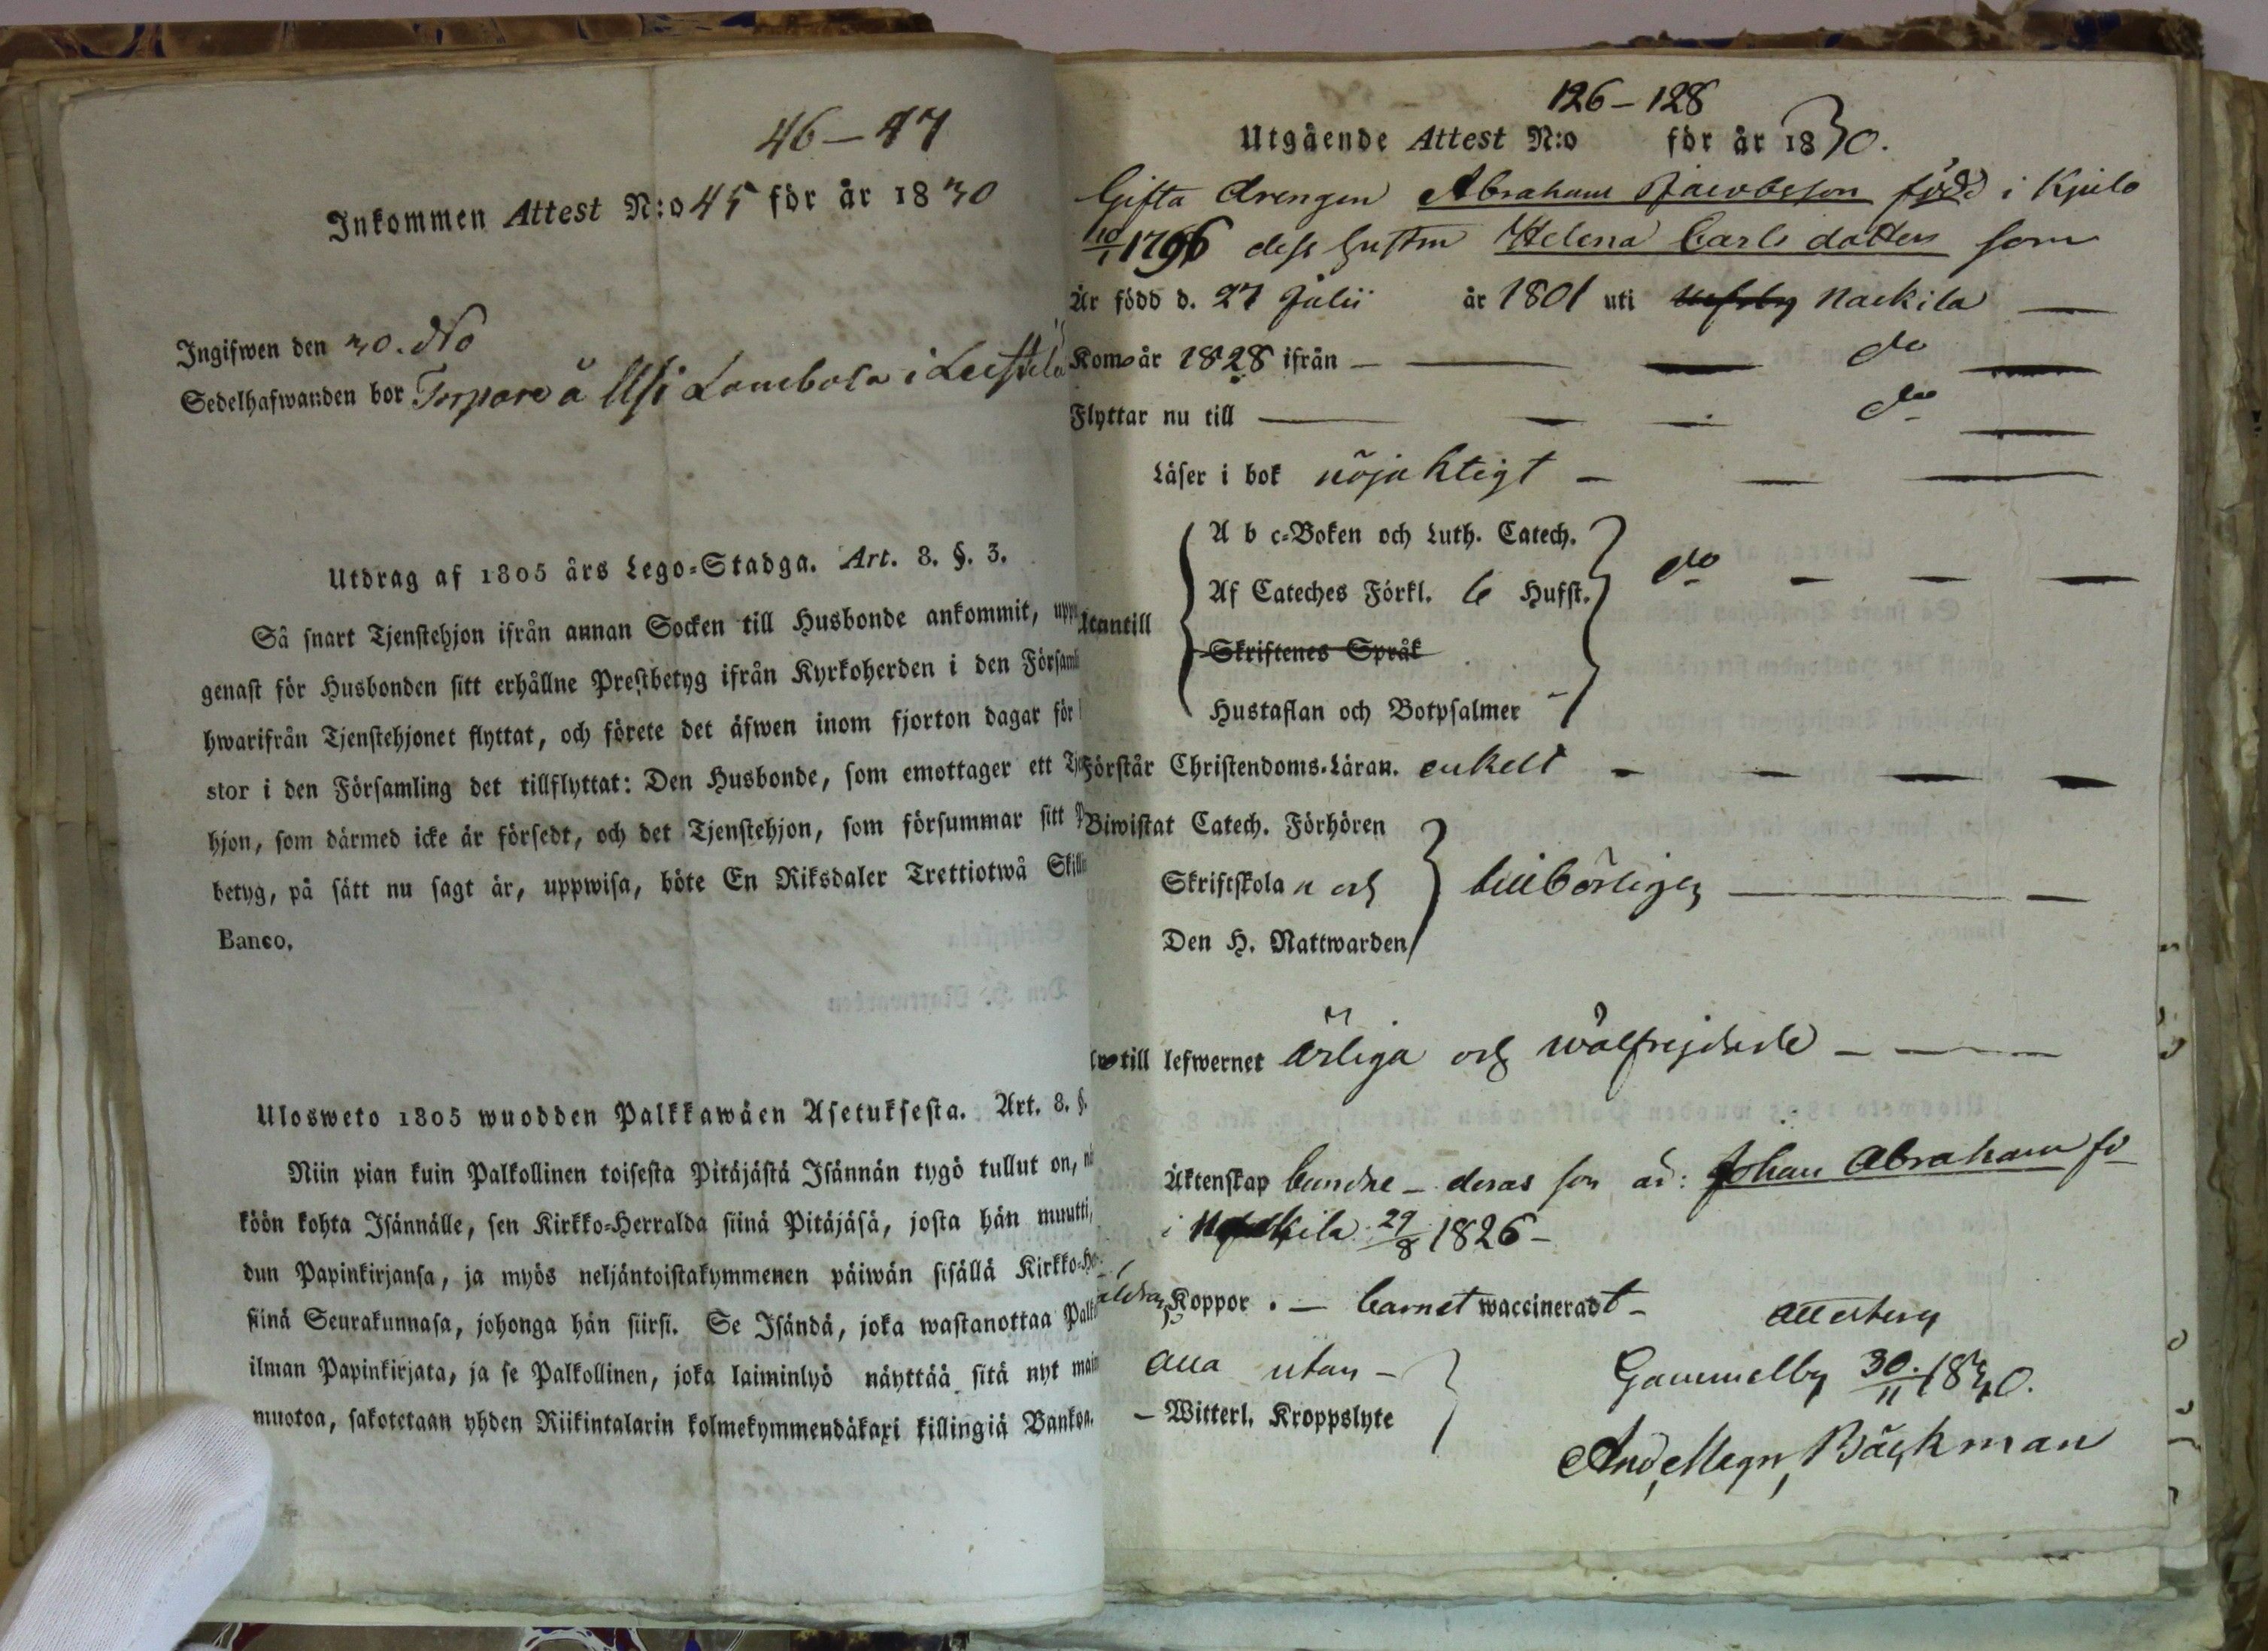 46–47
Inkommen Attest N:o 45 för år 1830
Ingifwen den 30. No
Sedelhafwanden bor Torpare å Usi Lambola i
Utdrag af 1805 års Lego-Stadga. Art. 8. §. 3.
Så snart Tjenstehjon ifrån annan Socken till Husbonde ankommit, upp
genast för Husbonden sitt erhållne Prestbetyg ifrån Kyrkoherden i den Församl
hwarifrån Tjenstehjonet flyttat, och förete det äfwen inom fjorton dagar för
stor i den Församling det tillflyttat: Den Husbonde, som emottager ett Tje
hjon, som därmed icke är försedt, och det Tjenstehjon, som försummar sitt P
betyg, på sätt nu sagt är, uppwisa, böte En Riksdaler Trettiotwå Skilli
Banco.
Ulosweto 1805 wuodden Palkkawäen Asetuksesta. Art. 8. §.
Niin pian kuin Palkollinen toisesta Pitäjästä Isännän tygö tullut on, nä
köön kohta Isännälle, sen Kirkko-Herralda siinä Pitäjäsä, josta hän muutti,
dun Papinkirjansa, ja myös neljäntoistakymmenen päiwän sisällä Kirkko-He
siinä Seurakunnasa, johonga hän siirsi. Se Isändä, joka wastanottaa Palk
ilman Papinkirjata, ja se Palkollinen, joka laiminlyö näyttää sitä nyt main
muotoa, sakotetaan yhden Riikintalarin kolmekymmendäkaxi killingiä Bankoa.
126–128
Utgående Attest N:o för år 1830.
Gifta drengen Abraham Jacobsson född i Kjulo
10/1 1796 dess hustru Helena Carls dotter som
Är född d. 27 Julii år 1801 uti Nackila —
Kom år 1828 ifrån — do —
Flyttar nu till — do —
Läser i bok nöjaktigt —
A b c-Boken och Luth. Catech.
Af Cateches Förkl. 6 Hufst. do —
Utantill
Skriftenes Språk
Hustaflan och Botpsalmer
Förstår Christendoms-Läran. enkelt —
Biwistat Catech. Förhören
Skriftskolan och tillbörligen —
Den H. Nattwarden
till lefwernet ärliga och wälfrejdade —
Äktenskap bundne – deras son är: Johan Abraham fö
i Nackila 29/8 1826 –
Koppor. — barnet waccineradt –
Alla utan –
– Witterl. Kroppslyte
Atterberg
Gammelby 30/11 1830.
And. Magn. Bäckman